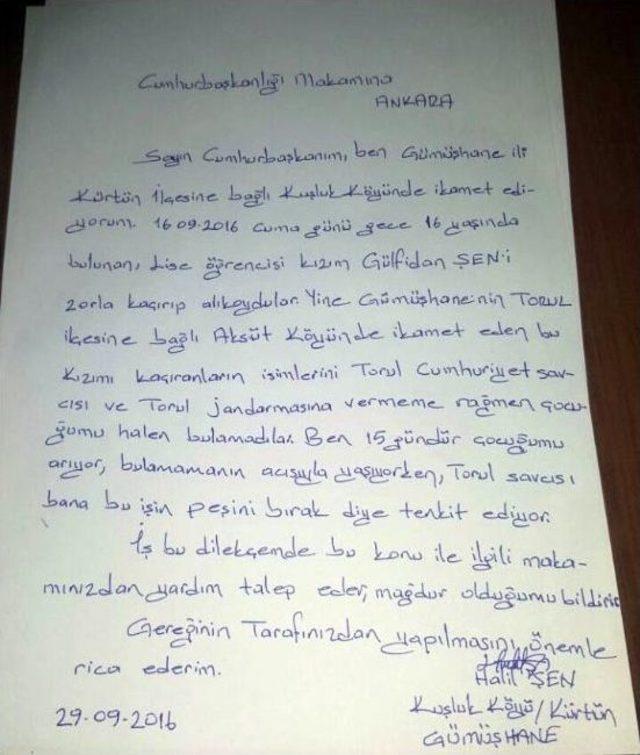 Cumhurbaşkanlığı Makamına
ANKARA
Sayın Cumhurbaşkanım, ben Gümüşhane ili
Kürtün İlçesine bağlı Kuşluk Köyünde ikamet edi-
yorum. 16.09.2016 Cuma günü gece 16 yaşında
bulunan, Lise öğrencisi kızım Gülfidan ŞEN'i
zorla kaçırıp alıkoydular. Yine Gümüşhane'nin TORUL
ilçesine bağlı Aksüt Köyünde ikamet eden bu
kızımı kaçıranların isimlerini Torul Cumhuriyet sav-
cısı ve Torul jandarmasına vermeme rağmen çocu-
ğumu halen bulamadılar. Ben 15 gündür çocuğumu
arıyor, bulamamanın acısıyla yaşıyorken, Torul savcısı
bana bu işin peşini bırak diye tenkit ediyor.
İş bu dilekçemde bu konu ile ilgili maka-
mınızdan yardım talep eder, mağdur olduğumu bildirir
Gereğinin Tarafınızdan yapılmasını önemle
rica ederim.
Halil ŞEN
Kuşluk Köyü / Kürtün
GÜMÜŞHANE
29.09.2016